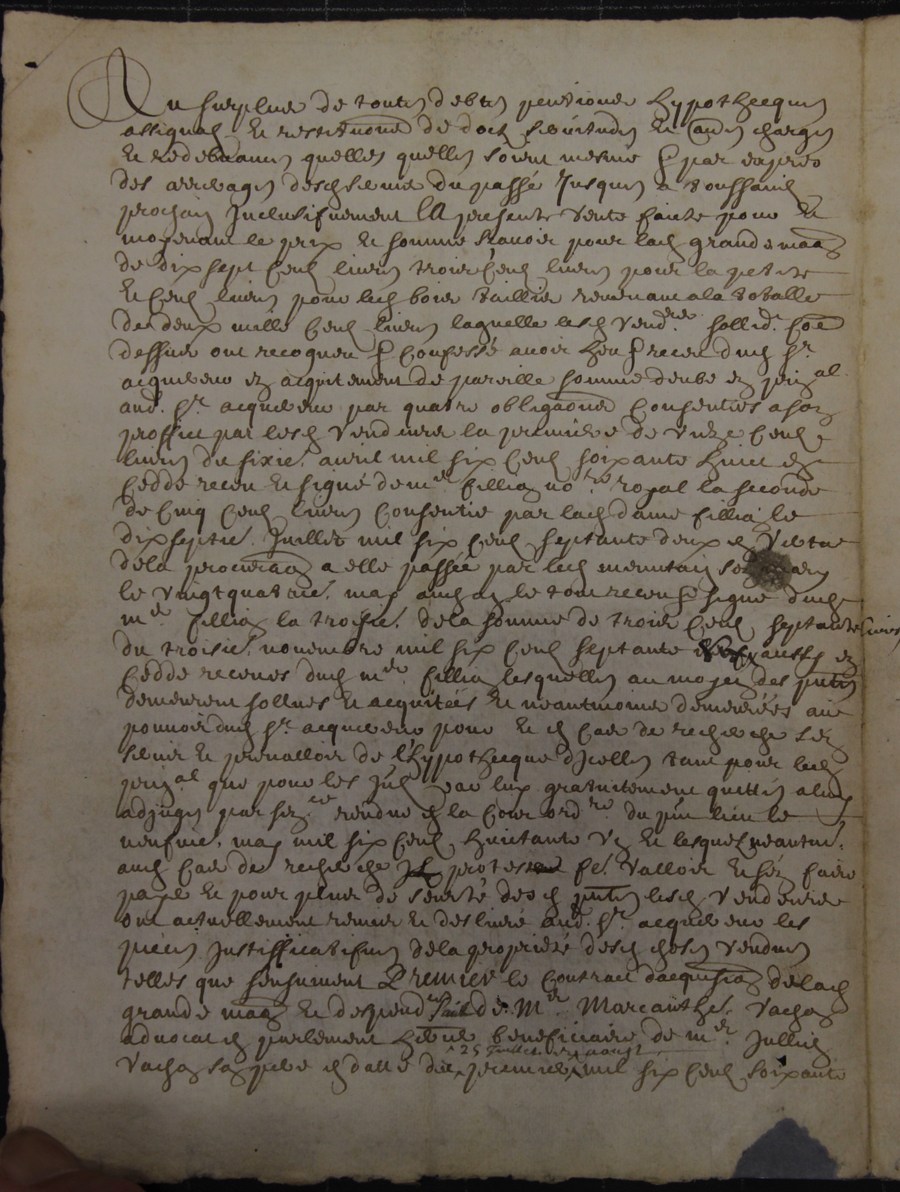 Au surplus de toutes debtes pentions hypotheques
assignaôn et restitutions de doct servitudes et autres charges
et redebvances quelles quelles soient mesme par expres
des arrerages desd servis du passé Jusques a toussaincts
prochain Inclusifvement la presente vente faicte pour et
moyenant le prix et somme scavoir pour lad grande maison
de dix sept cent livres trois cent livres pour la petite
et cent livres pour lesd bois taillis revenant a la totalle
de deux mille cent livres laquelle lesd vend.rs sollid. coe
dessus ont recogneu confessé avoir heu receu dud s.r
acquereur en acquitement de pareille somme deube en prin.al
aud. s.r acquereur par quatre obligaons consenties a son
proffict par lesd vendeurs la premiere de unze cent
livres du sixie. avril mil six cent soixante huict en
cedde receu et signé de m.e Fillion no.re royal la seconde
de cinq cent livres consentie par lad dame Fillion le
dixseptie. Juillet mil six cent septante deux en vertu
de la procuraon a elle passée par led
le vingtquatrie. may aud an le tout receu signé dud
m.e Fillion la troisie. de la somme de trois cent septante livres
du troisie. novembre mil six cent septante aussy en
cedde receues dud m.e Fillion lesquelles au moyen des pntes
demeurent sollues et acquitées et neantmoins demeurées au
pouvoir dud s.r acquereur pour et en cas de recherche sen
servir et prevalloir de l'hypotheque d'Icelles tant pour led
prin.al que pour les Int. par luy gratuitement quittés
adjugés par sen.ce rendue en la cour ord.re du pnt lieu le
neufvie. may mil six cent huictante un et lesquels neantm.
aud cas de recherche protes se. valloir et sen faire
payé et pour plus de seurté desd pntes lesd vendeurs
ont actuellement remis et deslivré aud. s.r acquereur les
pieces justifficatifves de la proprieté desd choses vendues
telles que sensuivent Premier le contract dacquision de lad
grande maison et despend. de M.e Marcanthe. Vachon
advocat en parlement heritier beneficiaire de m.e Jullien
25 Juillet
Vachon son pere en datte du premier mil six cent soixante